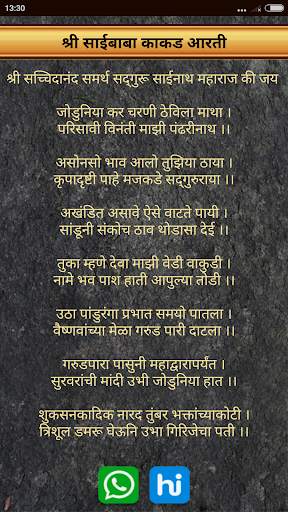 13:30
श्री साईबाबा काकड आरती
श्री सच्चिदानंद समर्थ सद्‌गुरू साईनाथ महाराज की जय
जोडुनिया कर चरणी ठेविला माथा ।
परिसावी विनंती माझी पंढरीनाथ ।।
असोनसो भाव आलो तुझिया ठाया ।
कृपादृष्टी पाहे मजकडे सद्‌गुरुराया ।।
अखंडित असावे ऐसे वाटते पायी ।
सांडूनी संकोच ठाव थोडासा देई ।।
तुका म्हणे देवा माझी वेडी वाकुडी ।
नामे भव पाश हाती आपुल्या तोडी ।।
उठा पांडुरंगा प्रभात समयो पातला ।
वैष्णवांच्या मेळा गरुड पारी दाटला ।।
गरुडपारा पासुनी महाद्वारापर्यंत ।
सुरवरांची मांदी उभी जोडुनिया हात ।।
शुकसनकादिक नारद तुंबर भक्तांच्याकोटी ।
त्रिशूल डमरू घेऊनि उभा गिरिजेचा पती ।।
hi